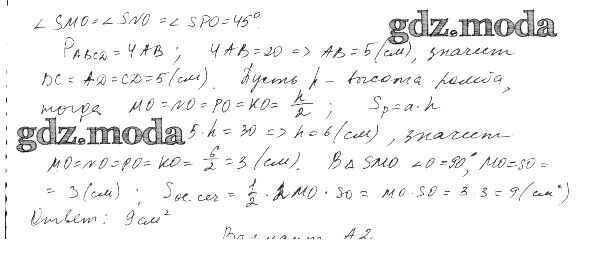 ∠SMO = ∠SNO = ∠SPO = 45°.
gdz.moda
P_ABCD = 4AB ; 4AB = 20 => AB = 5 (см), значит
DC = AD = CD = 5 (см). Пусть h - высота ромба,
тогда MO = NO = PO = KO = h/2 ; Sp = a·h
gdz.moda
5·h = 30 => h = 6 (см), значит
MO = NO = PO = KO = 6/2 = 3 (см). В △SMO ∠O = 90°, MO = SO =
= 3 (см) ; Sос.сеч = 1/2 · 2MO · SO = MO · SO = 3·3 = 9 (см²)
Ответ: 9 см²
Вариант А2.